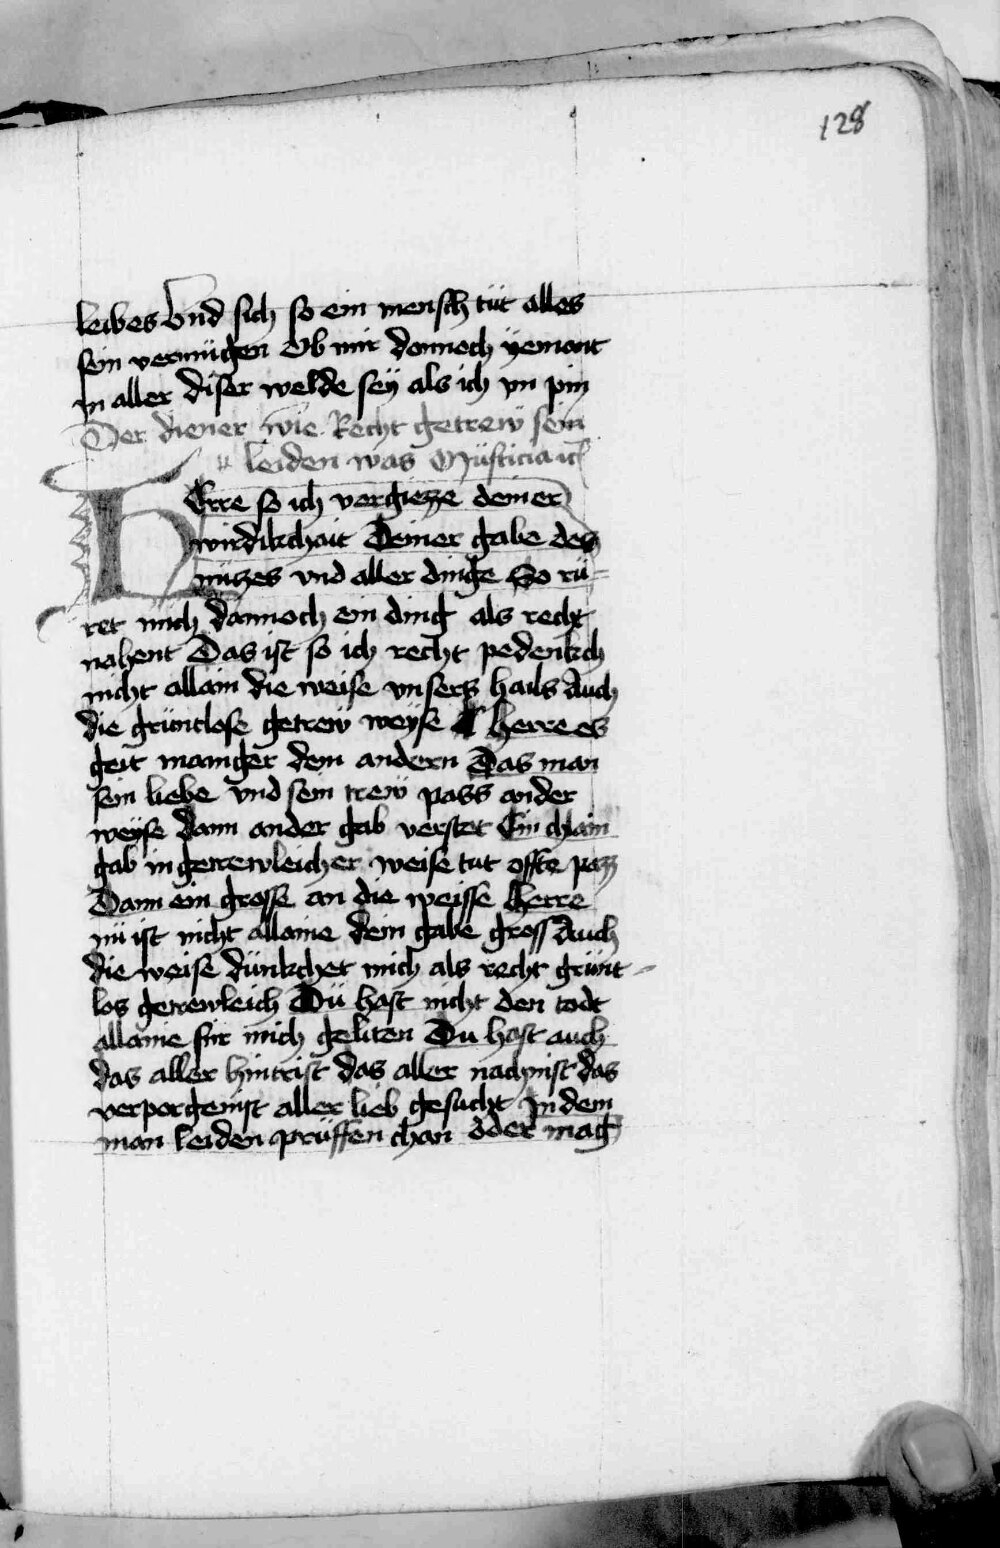 128
leibes Vnd sich so ein mensch tüt alles
sein vermügen Ob mir dannoch yemant
in aller diser welde sey als ich vn pin
Der diener wie Recht getrew sein
leiden was
HErre so ich vergizze deiner
wirdikchait Deiner gabe des
nützes vnd aller dinge So rü=
ret mich dannoch ein ding als recht
nahent Das ist so ich recht pedenkch
nicht allain die weise vnsers hails Auch
die grüntlose getrew weyse herre es
geit maniger dem andern Das man
sein liebe vnd sein trew pass ander
weyse dann ander gab verstet Ein chlain
gab in getrewleicher weise tut offte pazz
Dann ein grosse an die weisse herre
nü ist nicht allaine dein gabe gross Auch
die weise dünkchet mich als recht grünt-
los getrewleich Dü hast nicht den todt
allaine für mich geliten Du hast auch
das aller hintrist das aller nachnist das
verporgenist aller lieb gesücht In dem
man leiden prüffen chan oder mag